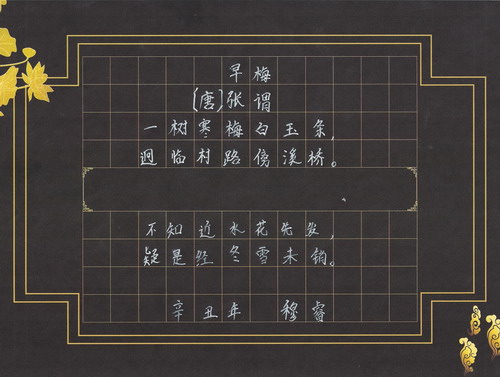 早梅
[唐]张谓
一树寒梅白玉条,
迥临村路傍溪桥。
不知近水花先发,
疑是经冬雪未销。
辛丑年 穆睿